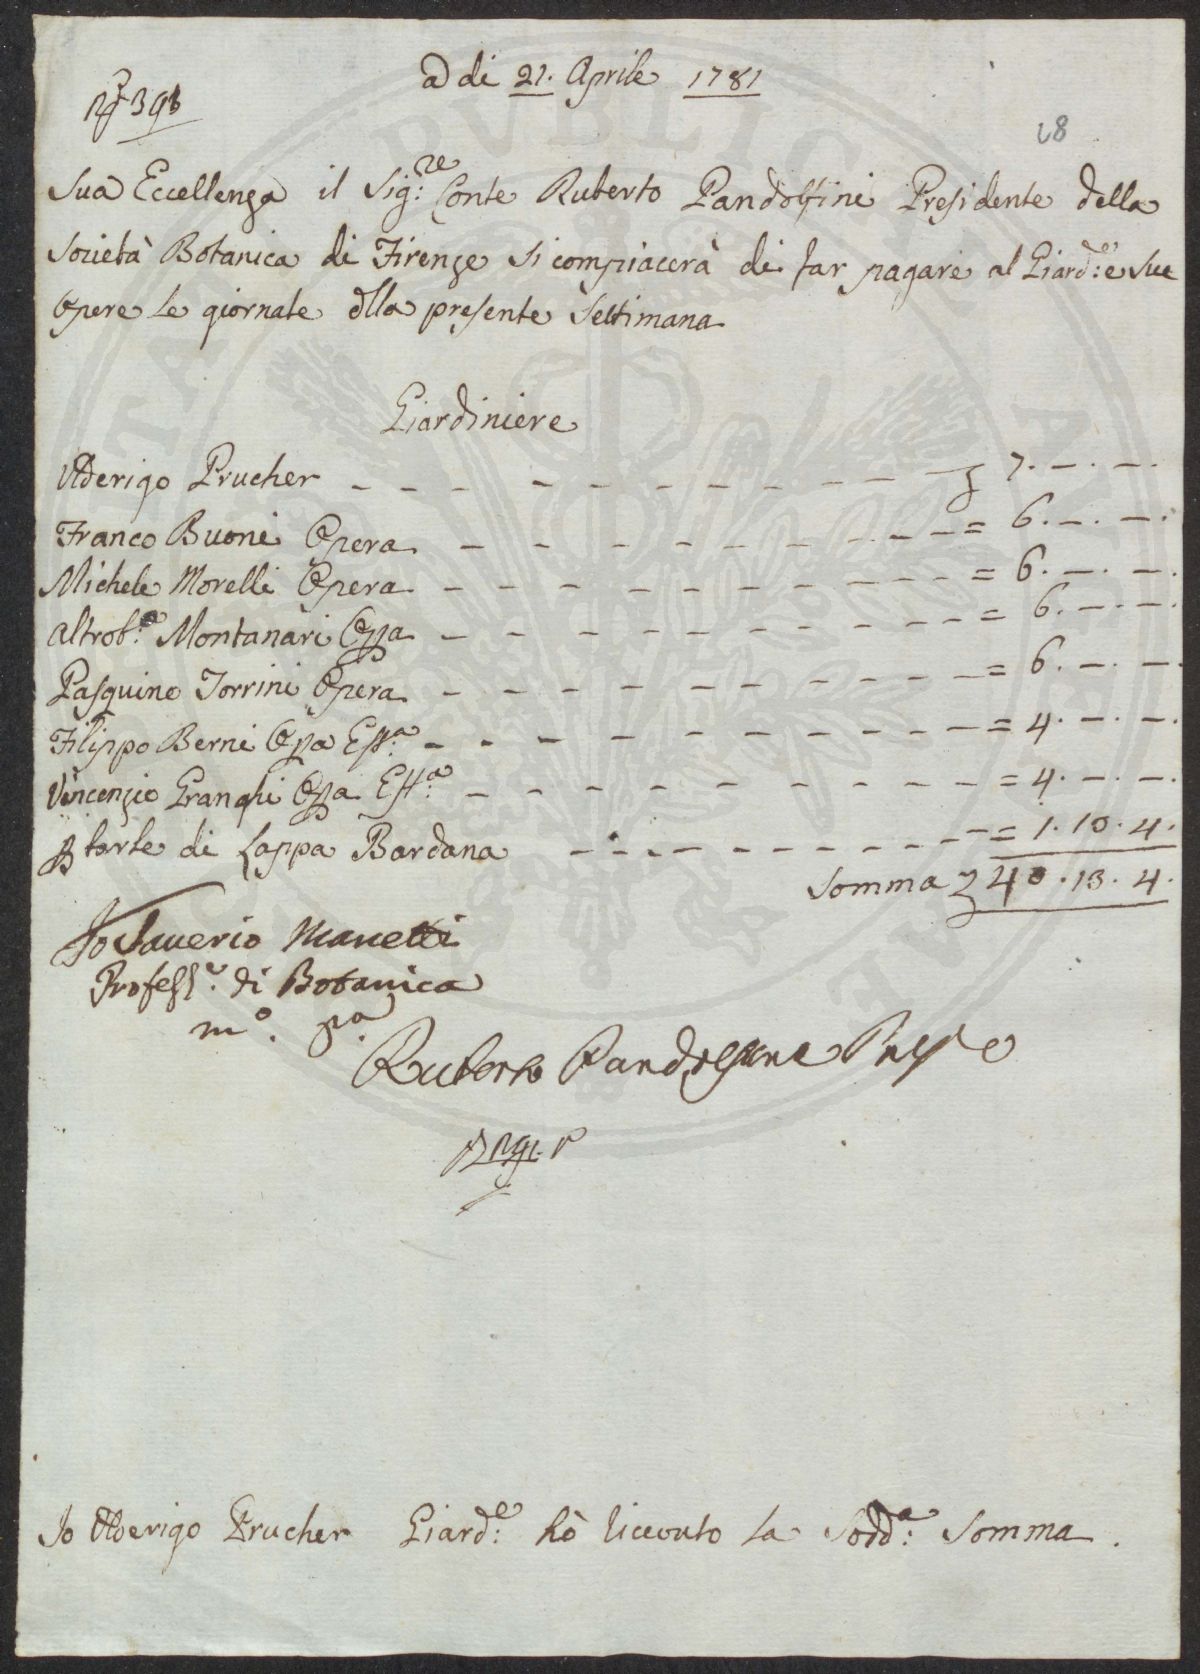 a di 21. Aprile 1781
28
Sua Eccellenza il Sig:re Conte Ruberto Pandolfini Presidente della
Società Botanica di Firenze si compiacerà di far pagare al Giard:e e sue
Opere le giornate dlla presente Settimana
Giardiniere
Uderigo Prucher - - - - - - - - - - - £ 7. -. -.
Franco Buoni Opera - - - - - - - - - = 6. -. -.
Michele Morelli Opera - - - - - - - - - = 6. -. -.
Altrob:o Montanari Opa - - - - - - - - - = 6. -. -.
Pasquino Torrini Opera - - - - - - - - - = 6. -. -.
Filippo Berni Opa Est:a - - - - - - - - - = 4. -. -.
Vincenzio Granchi Opa Est:a - - - - - - - - - = 4. -. -.
P torte di Lappa Bardana - - - - - - - - = 1. 10. 4.
Somma £ 40. 13. 4.
Io Saverio Manetti
Profess:e di Botanica
mo. pa
Ruberto Pandolfini Presde
Io Uderigo Prucher Giard:e hò ricevuto la Sodd:a Somma.
PVBLICA